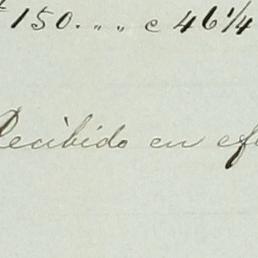 150. „ „ c 46 1/4
Recibido en ef